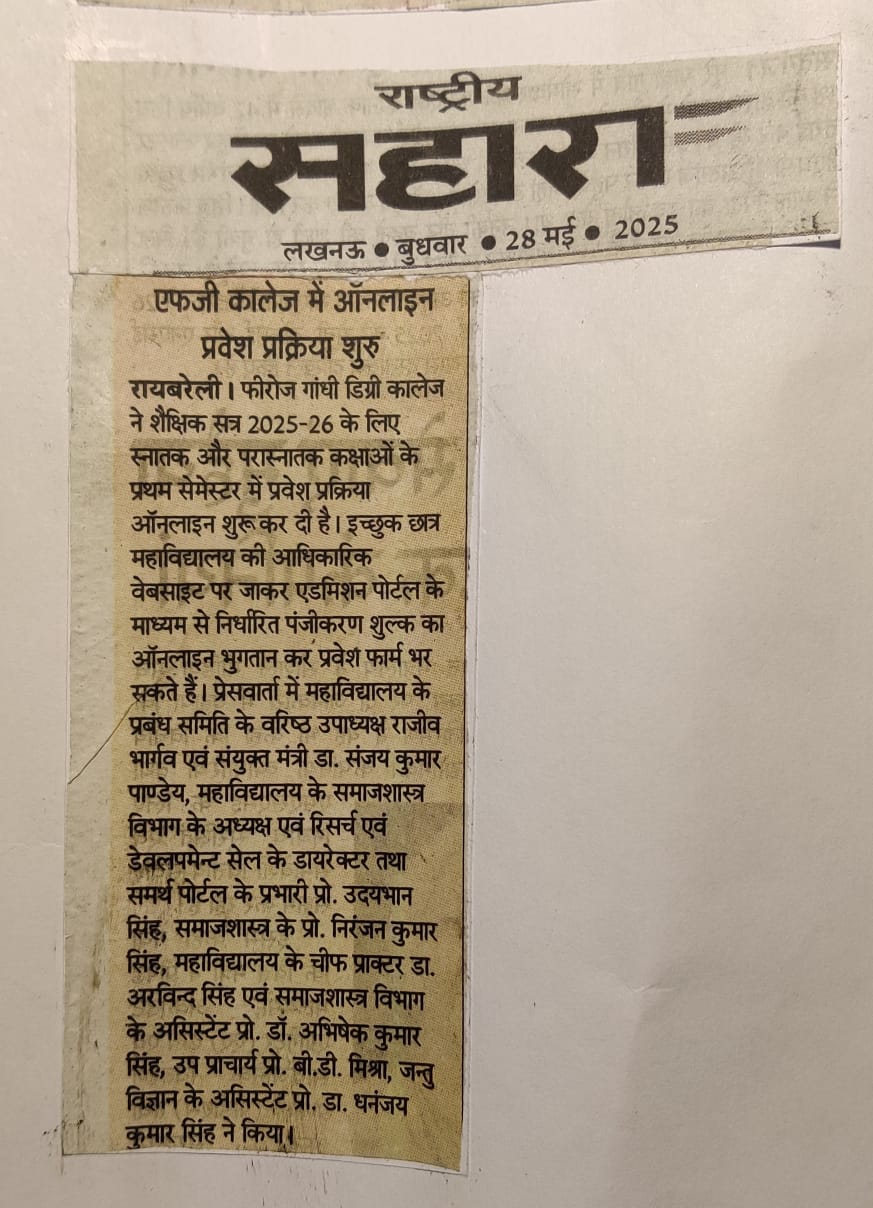 राष्ट्रीय
सहारा
लखनऊ • बुधवार • 28 मई • 2025
एफजी कालेज में ऑनलाइन
प्रवेश प्रक्रिया शुरु
रायबरेली। फीरोज गांधी डिग्री कालेज
ने शैक्षिक सत्र 2025-26 के लिए
स्नातक और परास्नातक कक्षाओं के
प्रथम सेमेस्टर में प्रवेश प्रक्रिया
ऑनलाइन शुरू कर दी है। इच्छुक छात्र
महाविद्यालय की आधिकारिक
वेबसाइट पर जाकर एडमिशन पोर्टल के
माध्यम से निर्धारित पंजीकरण शुल्क का
ऑनलाइन भुगतान कर प्रवेश फार्म भर
सकते हैं। प्रेसवार्ता में महाविद्यालय के
प्रबंध समिति के वरिष्ठ उपाध्यक्ष राजीव
भार्गव एवं संयुक्त मंत्री डा. संजय कुमार
पाण्डेय, महाविद्यालय के समाजशास्त्र
विभाग के अध्यक्ष एवं रिसर्च एवं
डेवलपमेन्ट सेल के डायरेक्टर तथा
समर्थ पोर्टल के प्रभारी प्रो. उदयभान
सिंह, समाजशास्त्र के प्रो. निरंजन कुमार
सिंह, महाविद्यालय के चीफ प्राक्टर डा.
अरविन्द सिंह एवं समाजशास्त्र विभाग
के असिस्टेंट प्रो. डॉ. अभिषेक कुमार
सिंह, उप प्राचार्य प्रो. बी.डी. मिश्रा, जन्तु
विज्ञान के असिस्टेंट प्रो. डा. धनंजय
कुमार सिंह ने किया।